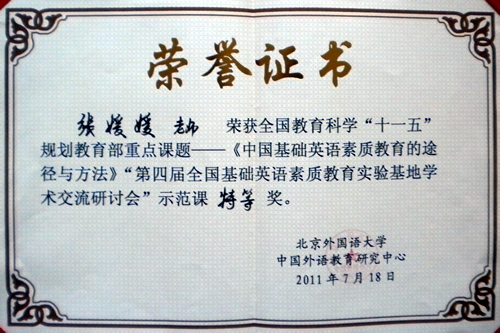 荣誉证书
张媛媛 老师 荣获全国教育科学“十一五”
规划教育部重点课题——《中国基础英语素质教育的途
径与方法》“第四届全国基础英语素质教育实验基地学
术交流研讨会”示范课 特等 奖。
北京外国语大学
中国外语教育研究中心
2011年7月18日